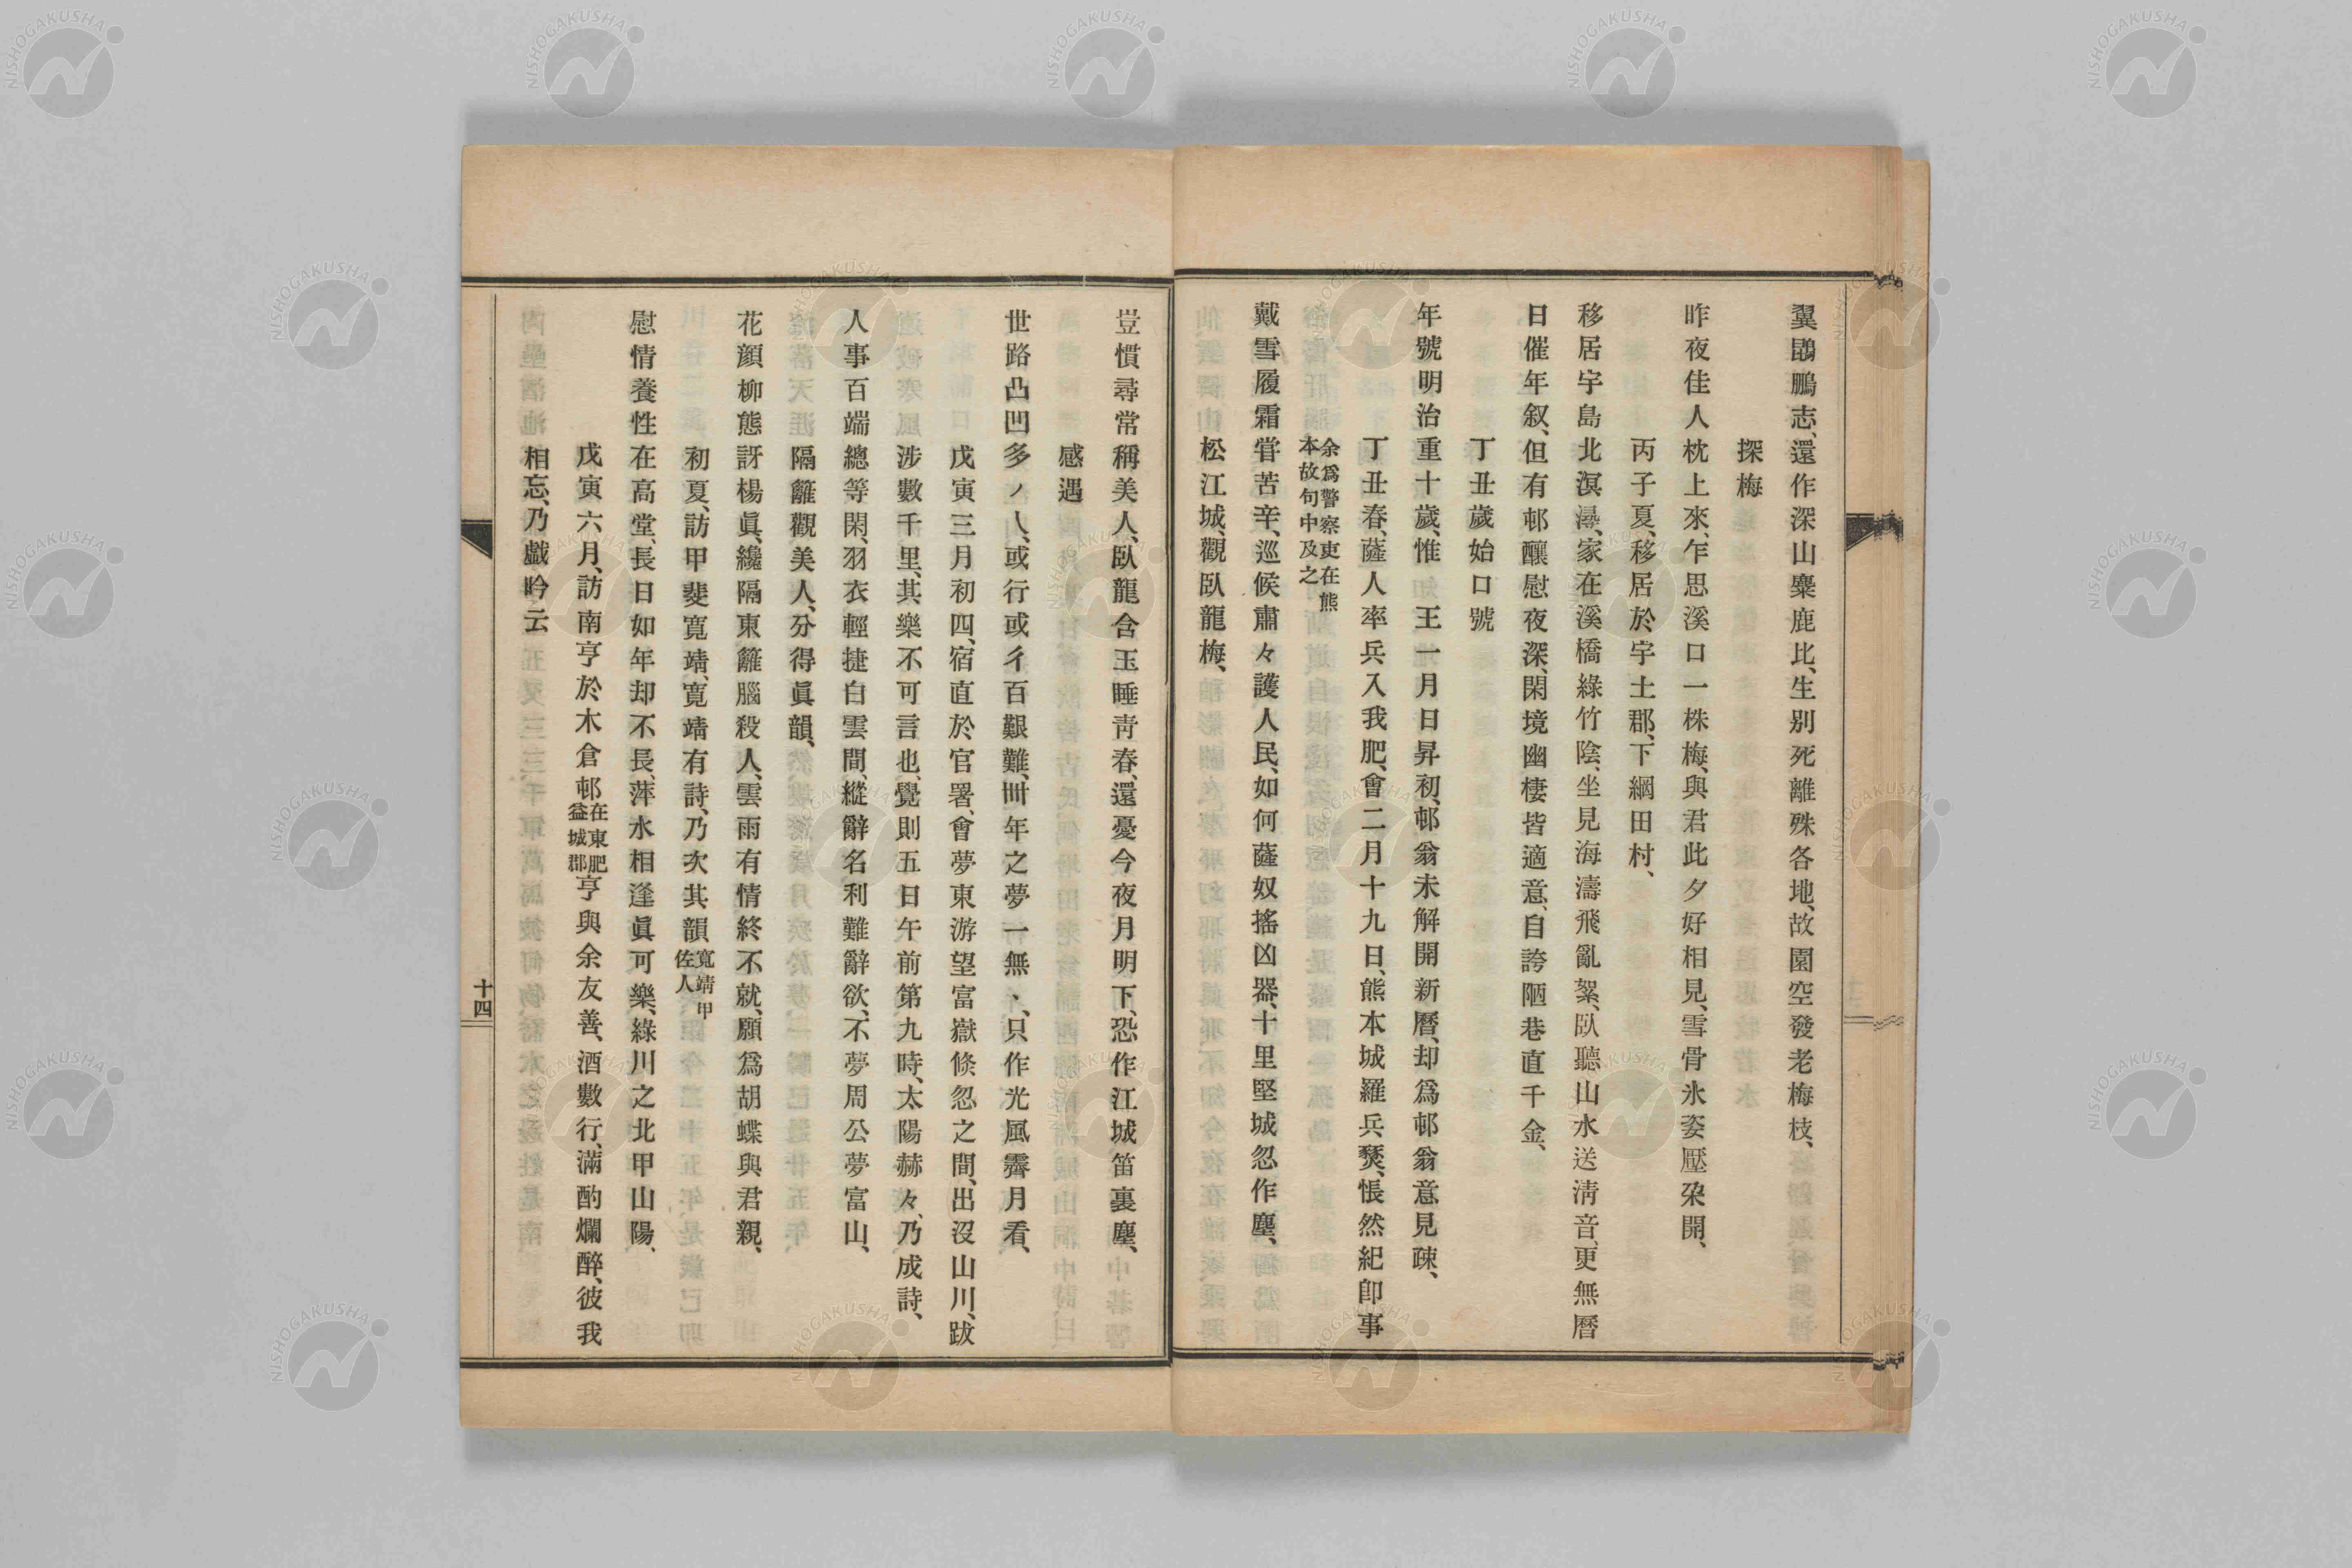 翼鵾鵬志、還作深山麋鹿比、生别死離殊各地、故園空發老梅枝、
探梅
昨夜佳人枕上來、乍思溪口一株梅、與君此夕好相見、雪骨氷姿壓朶開、
丙子夏、移居於宇土郡、下網田村、
移居宇島北溟潯、家在溪橋綠竹陰、坐見海濤飛亂絮、臥聽山水送淸音、更無曆
日催年叙、但有邨釀慰夜深、閑境幽棲皆適意、自誇陋巷直千金、
丁丑歲始口號
年號明治重十歲、惟王一月日昇初、邨翁未解開新曆、却爲邨翁意見疎、
丁丑春、薩人率兵入我肥、會二月十九日、熊本城羅兵燹、悵然紀卽事
余爲警察吏在熊
本故句中及之
戴雪履霜甞苦辛、巡候肅々護人民、如何薩奴搖凶器、十里堅城忽作塵、
松江城、觀臥龍梅、
豈慣尋常稱美人、臥龍含玉睡靑春、還憂今夜月明下、恐作江城笛裏塵、
感遇
世路凸凹多ノ乀、或行或彳百艱難、卌年之夢一無丶、只作光風霽月看、
戊寅三月初四、宿直於官署、會夢東游望富嶽倏忽之間、出沒山川、跋
涉數千里、其樂不可言也、覺則五日午前第九時、太陽赫々、乃成詩、
人事百端總等閑、羽衣輕捷白雲間、縱辭名利難辭欲、不夢周公夢富山、
隔籬觀美人、分得眞韻、
花顔柳態訝楊眞、纔隔東籬腦殺人、雲雨有情終不就、願爲胡蝶與君親、
初夏、訪甲斐寬靖、寬靖有詩、乃次其韻、寬靖甲佐人
慰情養性在高堂、長日如年却不長、萍水相逢眞可樂、綠川之北甲山陽、
戊寅六月、訪南亨於木倉邨在東肥益城郡亨與余友善、酒數行、滿酌爛醉、彼我
相忘、乃戲吟云
十四
NISHOGAKUSHA